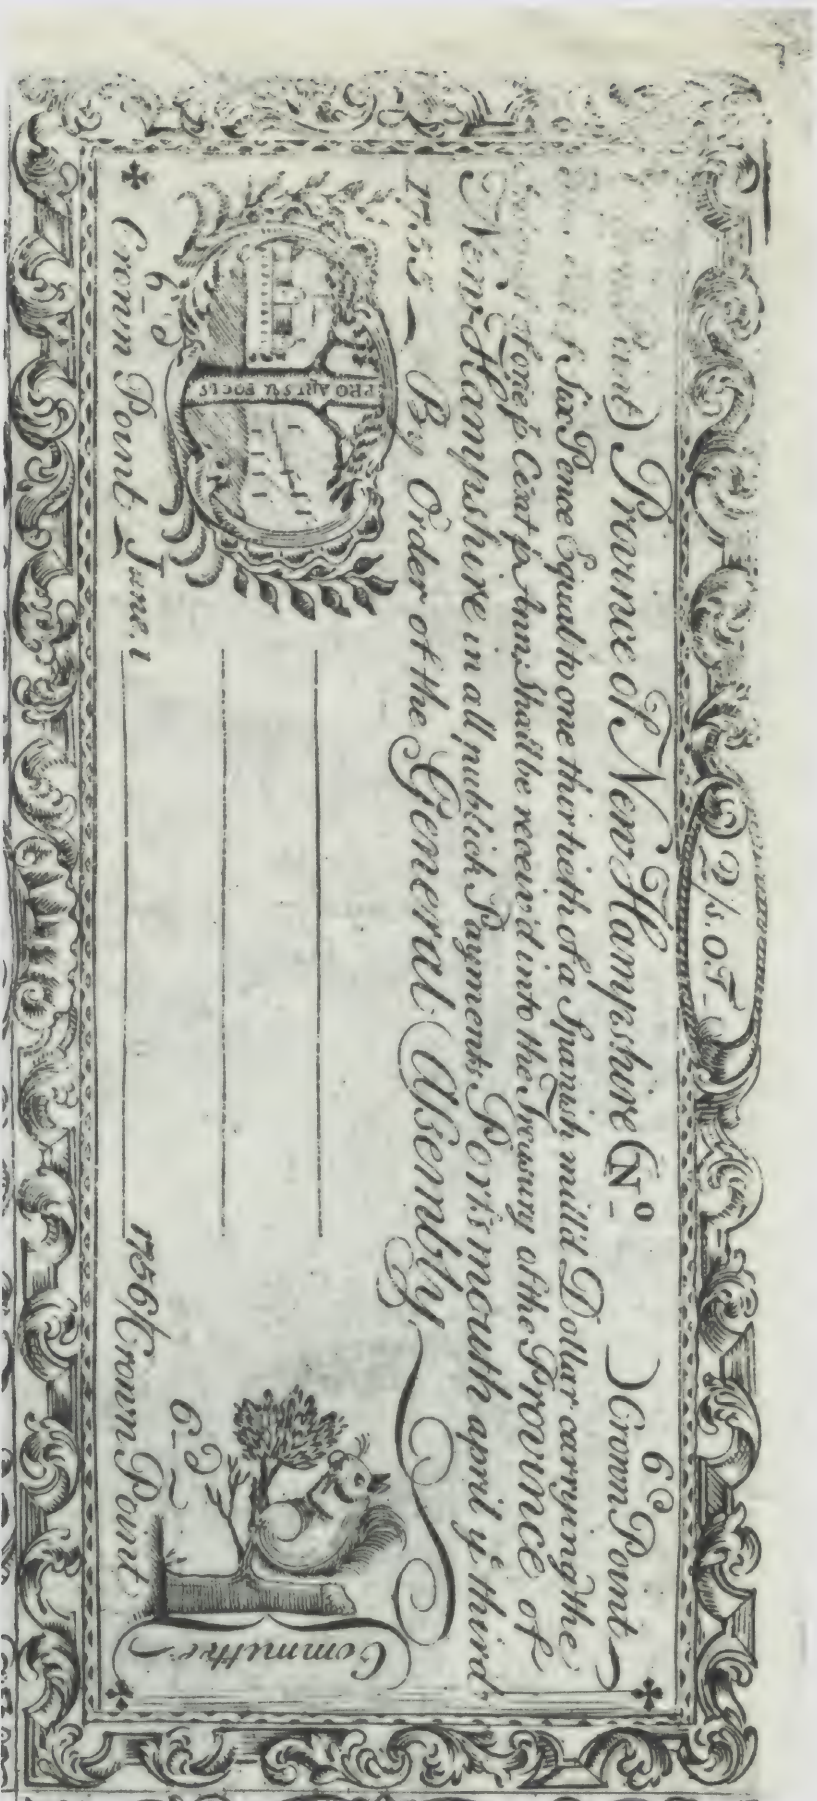 2/s. O.T.
6 D
Province of New Hampshire (No ) Crown Point
Six Pence Equal to one thirtieth of a Spanish mill'd Dollar carrying the
p Cent p Ann. Shall be receiv'd into the Treasury of the Province of
New-Hampshire in all publick Payments Portsmouth april ye third
1755 By Order of the General Assembly
PRO ARIS & FOCIS
Committee
6 D
6 D
Crown Point June. 1 1756 Crown Point